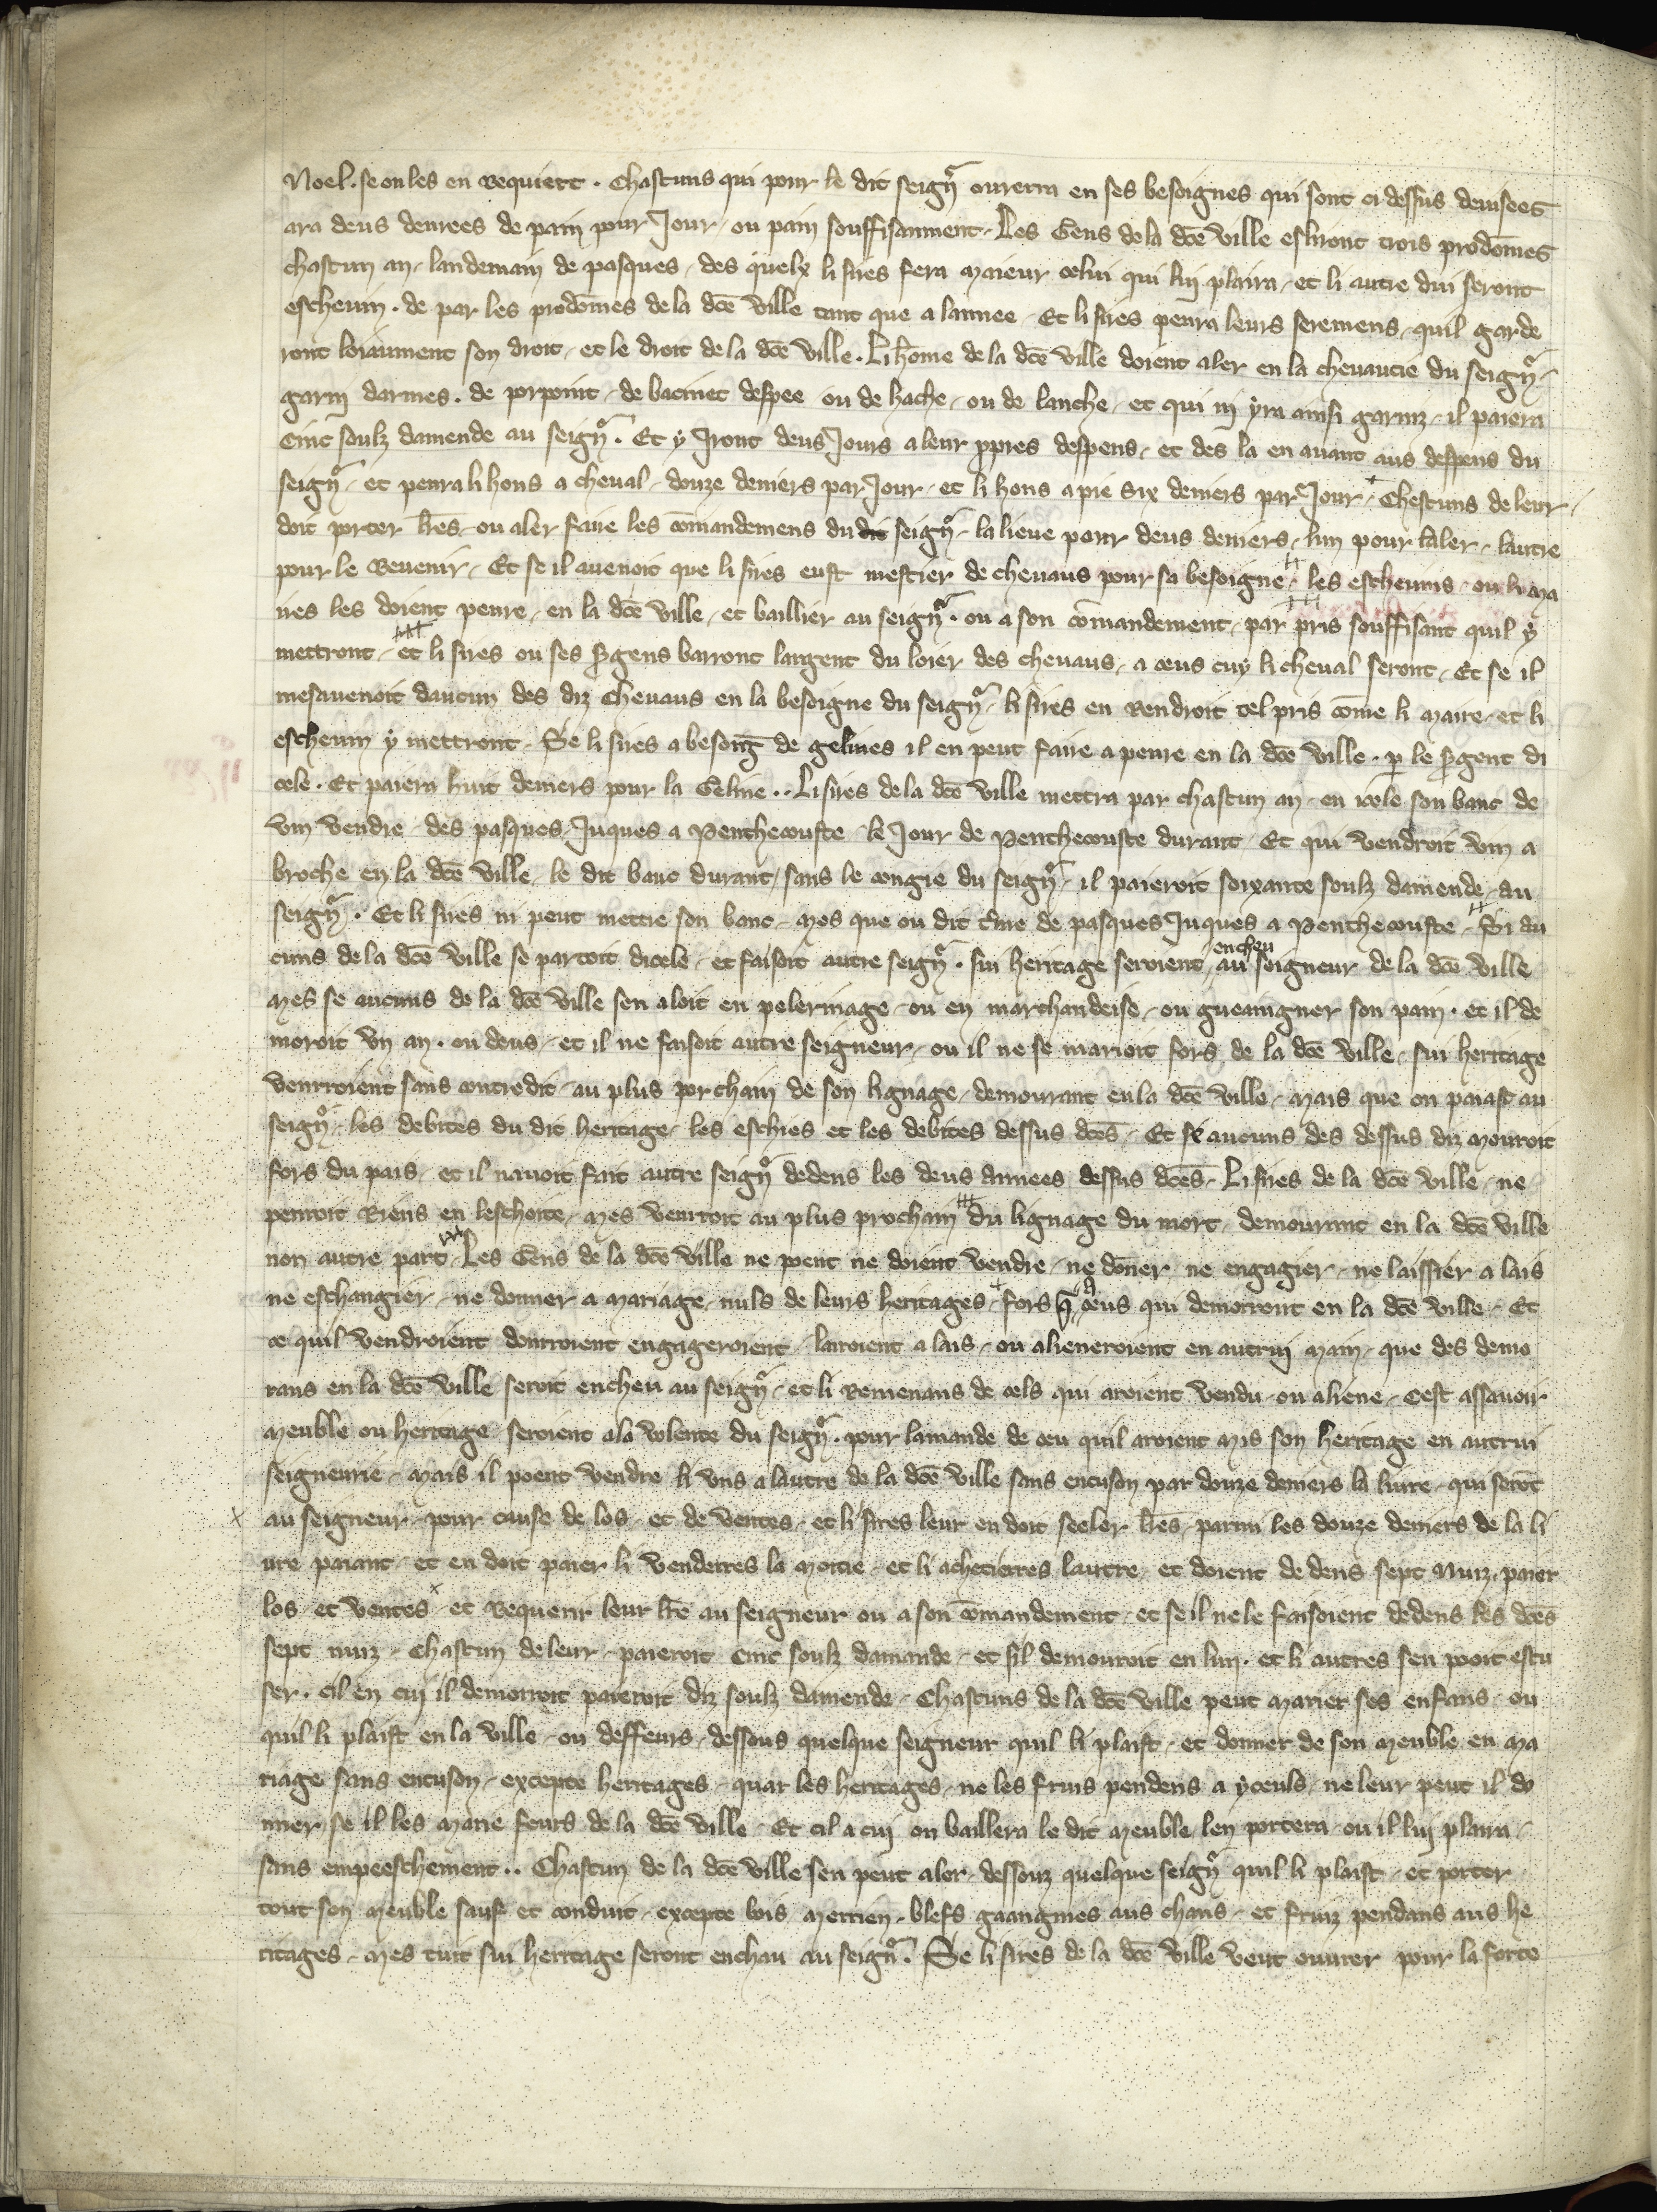 Noel. se on les en Requiert. Chascuns qui pour le dit seignr ouurera en ses besoignes qui sont ci dessus deuisees
ara deus denrees de pain pour Jour, ou pain souffisanment. Les Gens de la dce ville esliront trois prodomes
chascun an, landemain de pasques, des quelx li sires fera maieur celui qui luy plaira, et li autre dui seront
escheuin. de par les prodomes de la dce ville tant que a lannee. Et li sires penra leurs seremens, quil garde
ront loiaument son droit, et le droit de la dce ville. Li home de la dce ville doient aler en la cheuaucie du seignr,
garni darmes. de porpoint, de bacinet despee ou de hache, ou de lanche, et qui ni yra ainsi garniz, il paiera
Cinc soulz damende au seignr. Et y Jront deus Jours a leur ppres despens, et des la en auant aus despens du
seignr, et penra li hons a cheual, douze deniers par Jour, et li hons a pie six deniers par Jour, Chescuns de leur,
doit porter lres, ou aler faire les comandemens du dit seignr, la lieue pour deus deniers, lun pour laler, lautre
pour le Reuenir, Et se il auenoit que li sires eust mestier de cheuaus pour sa besoigne, les escheuins, ou li ma
ires les doient penre, en la dce ville, et baillier au seignr. ou a son comandement, par pris souffisant quil y
mettront, et li sires ou ses sgens barront largent du loier des cheuaus, a ceus cuy li cheual seront, Et se il
mesauenoit daucun des diz cheuaus en la besoigne du seignr, li sires en Rendroit tel pris come li maire, et li
escheuin y mettront. Se li sires a besong de gelines il en peut faire a penre en la dce ville. p le sgent di
cele. Et paiera huit deniers pour la Geline.. Li sires de la dce ville mettra par chascun an, en icele son banc de
vin vendre, des pasques Juques a Penthecouste, le Jour de Penthecouste durant, Et qui vendroit vin a
broche en la dce ville, le dit banc durant, sans le congie du seignr, il paieroit soixante soulz damende, au
seignr. Et li sires ni peut mettre son banc, mes que ou dit tme de pasques Juques a Penthecouste, Si au
cuns de la dce ville se partoit dicele, et faisoit autre seignr. sui heritage seroient encheu au seigneur de la dce ville
mes se aucuns de la dce ville sen aloit en pelerinage, ou en marchandeise, ou gueaingner son pain. et il de
moroit vn an. ou deus, et il ne faisoit autre seigneur, ou il ne se marioit fors de la dce ville, sui heritage
venrroient sans contredit, au plus porchain de son lignage, demourant en la dce ville, mais que on paiast au
seignr, les debites du dit heritage, les eschies et les debites dessus dces, Et se aucuns des dessus diz mouroit
fors du pais, et il nauoit fait autre seignr dedens les deus annees dessus dces, Li sires de la dce ville, ne
penroit Riens en leschoite, mes venrroit au plus prochain du lignage du mort, demourant en la dce ville
non autre part, Les Gens de la dce ville ne poent ne doient vendre, ne doner, ne engagier, ne laissier a lais
ne eschangier, ne donner a mariage, nuls de leurs heritages, fors q a ceus qui demorront en la dce ville, Et
ce quil vendroient donrroient engageroient, lairoient a lais, ou alieneroient en autrui main, que des demo
rans en la dce ville seroit encheu au seignr, et li Remenans de cels qui aroient vendu, ou aliene, Cest assauoir
meuble ou heritage seroient a la volente du seignr. pour lamande de ceu quil aroient mis son heritage en autrui
seigneurie, mais il poent vendre li vns a lautre de la dce ville sans encuson par douze deniers la liure, qui serot
au seigneur, pour cause de los, et de ventes, et li sires leur en doit seeler lres, parmi les douze deniers de la li
ure paiant, et en doit paier li venderres la moitie, et li achetierres lautre, et doient de dens sept nuiz, paier
los, et ventes, et Requerir leur lre au seigneur ou a son comandement, et se il ne le faisoient dedens les dces
sept nuiz, Chascun de leur, paieroit Cinc soulz damande, et sil demouroit en lun. et li autres sen pooit escu
ser. cil en cui il demorroit paieroit diz soulz damende, Chascuns de la dce ville peut marier ses enfans, ou
quil li plaist en la ville, ou deffeurs, dessous quelque seigneur quil li plaist, et donner de son meuble en ma
riage sans encuson, excepte heritages, quar les heritages, ne les fruis pendens a yceuls, ne leur peut il do
nner se il les marie feurs de la dce ville, Et cil a cui on baillera le dit meuble len portera, ou il luy plaira,
sans empeeschement.. Chascun de la dce ville sen peut aler, dessouz quelque seignr quil li plaist, et porter
tout son meuble sauf et conduit, excepte bois, merrien, blefs gaangnies aus chans, et fruiz pendans aus he
ritages, mes tuit sui heritage seront encheu au seignr. Se li sires de la dce ville veut ouurer pour la force